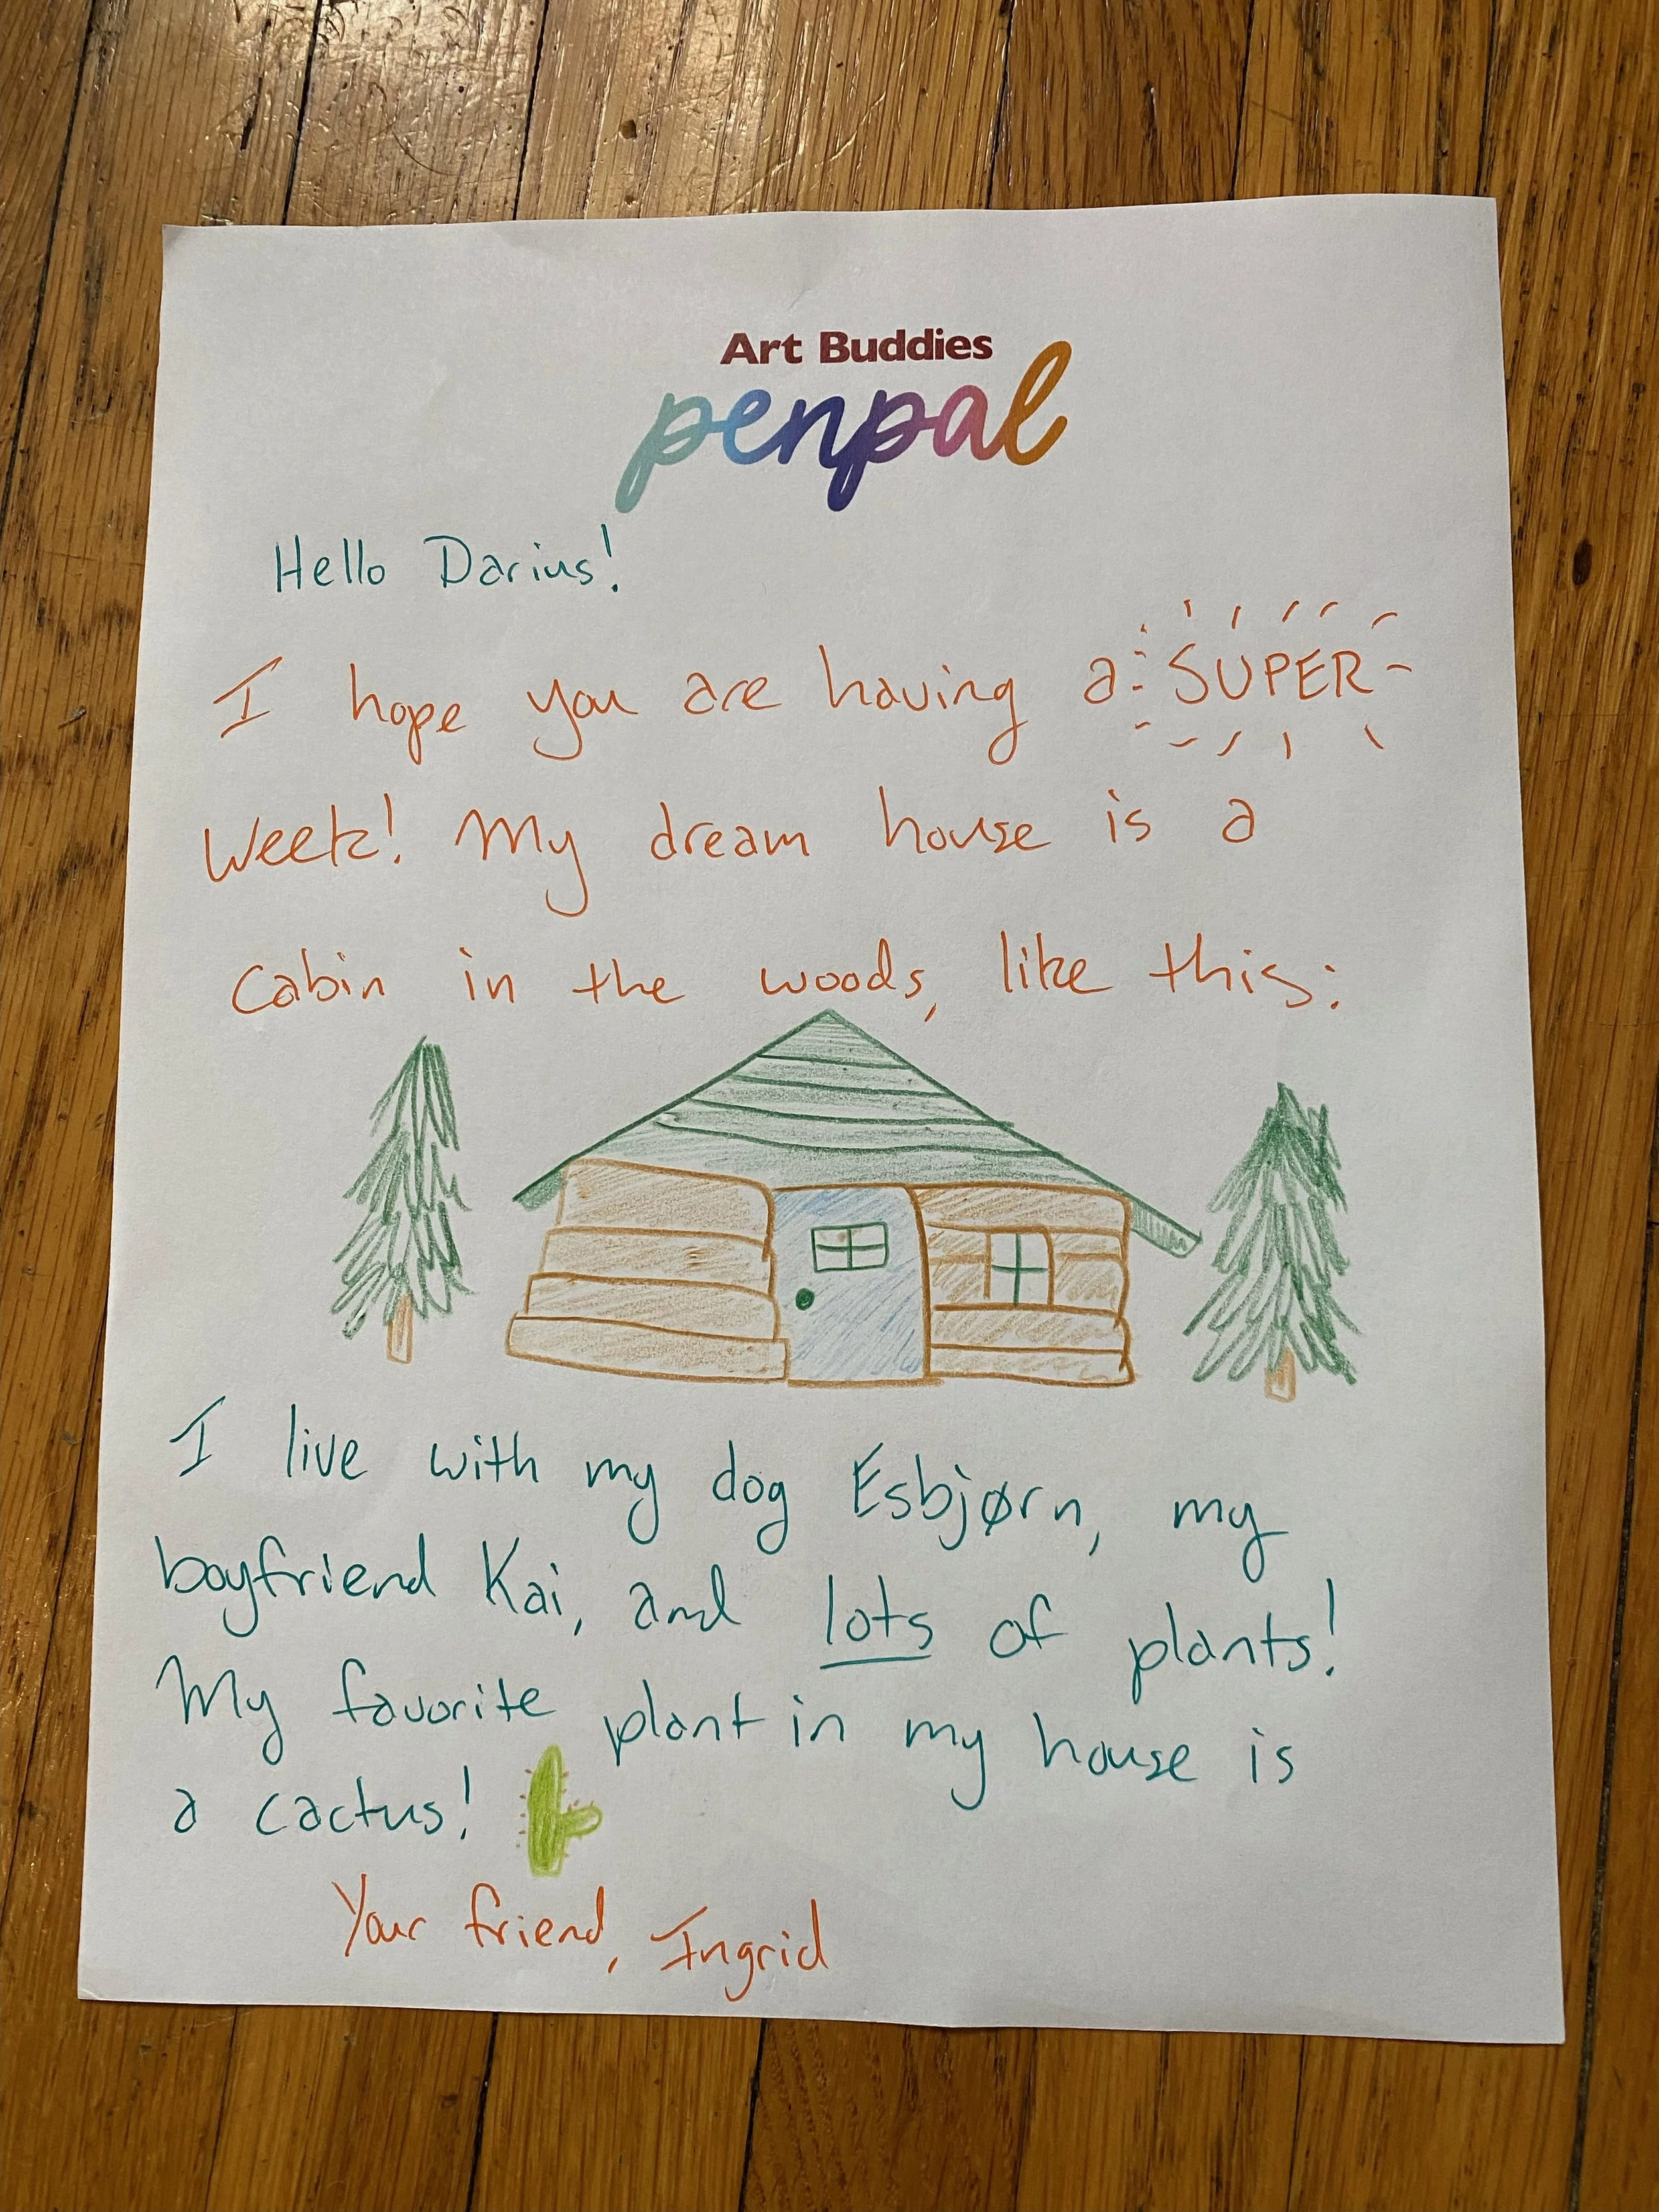 Art Buddies
penpal
Hello Darius!
I hope you are having a SUPER
week! My dream house is a
cabin in the woods, like this:
I live with my dog Esbjørn, my
boyfriend Kai, and lots of plants!
My favorite plant in my house is
a cactus!
Your friend, Ingrid